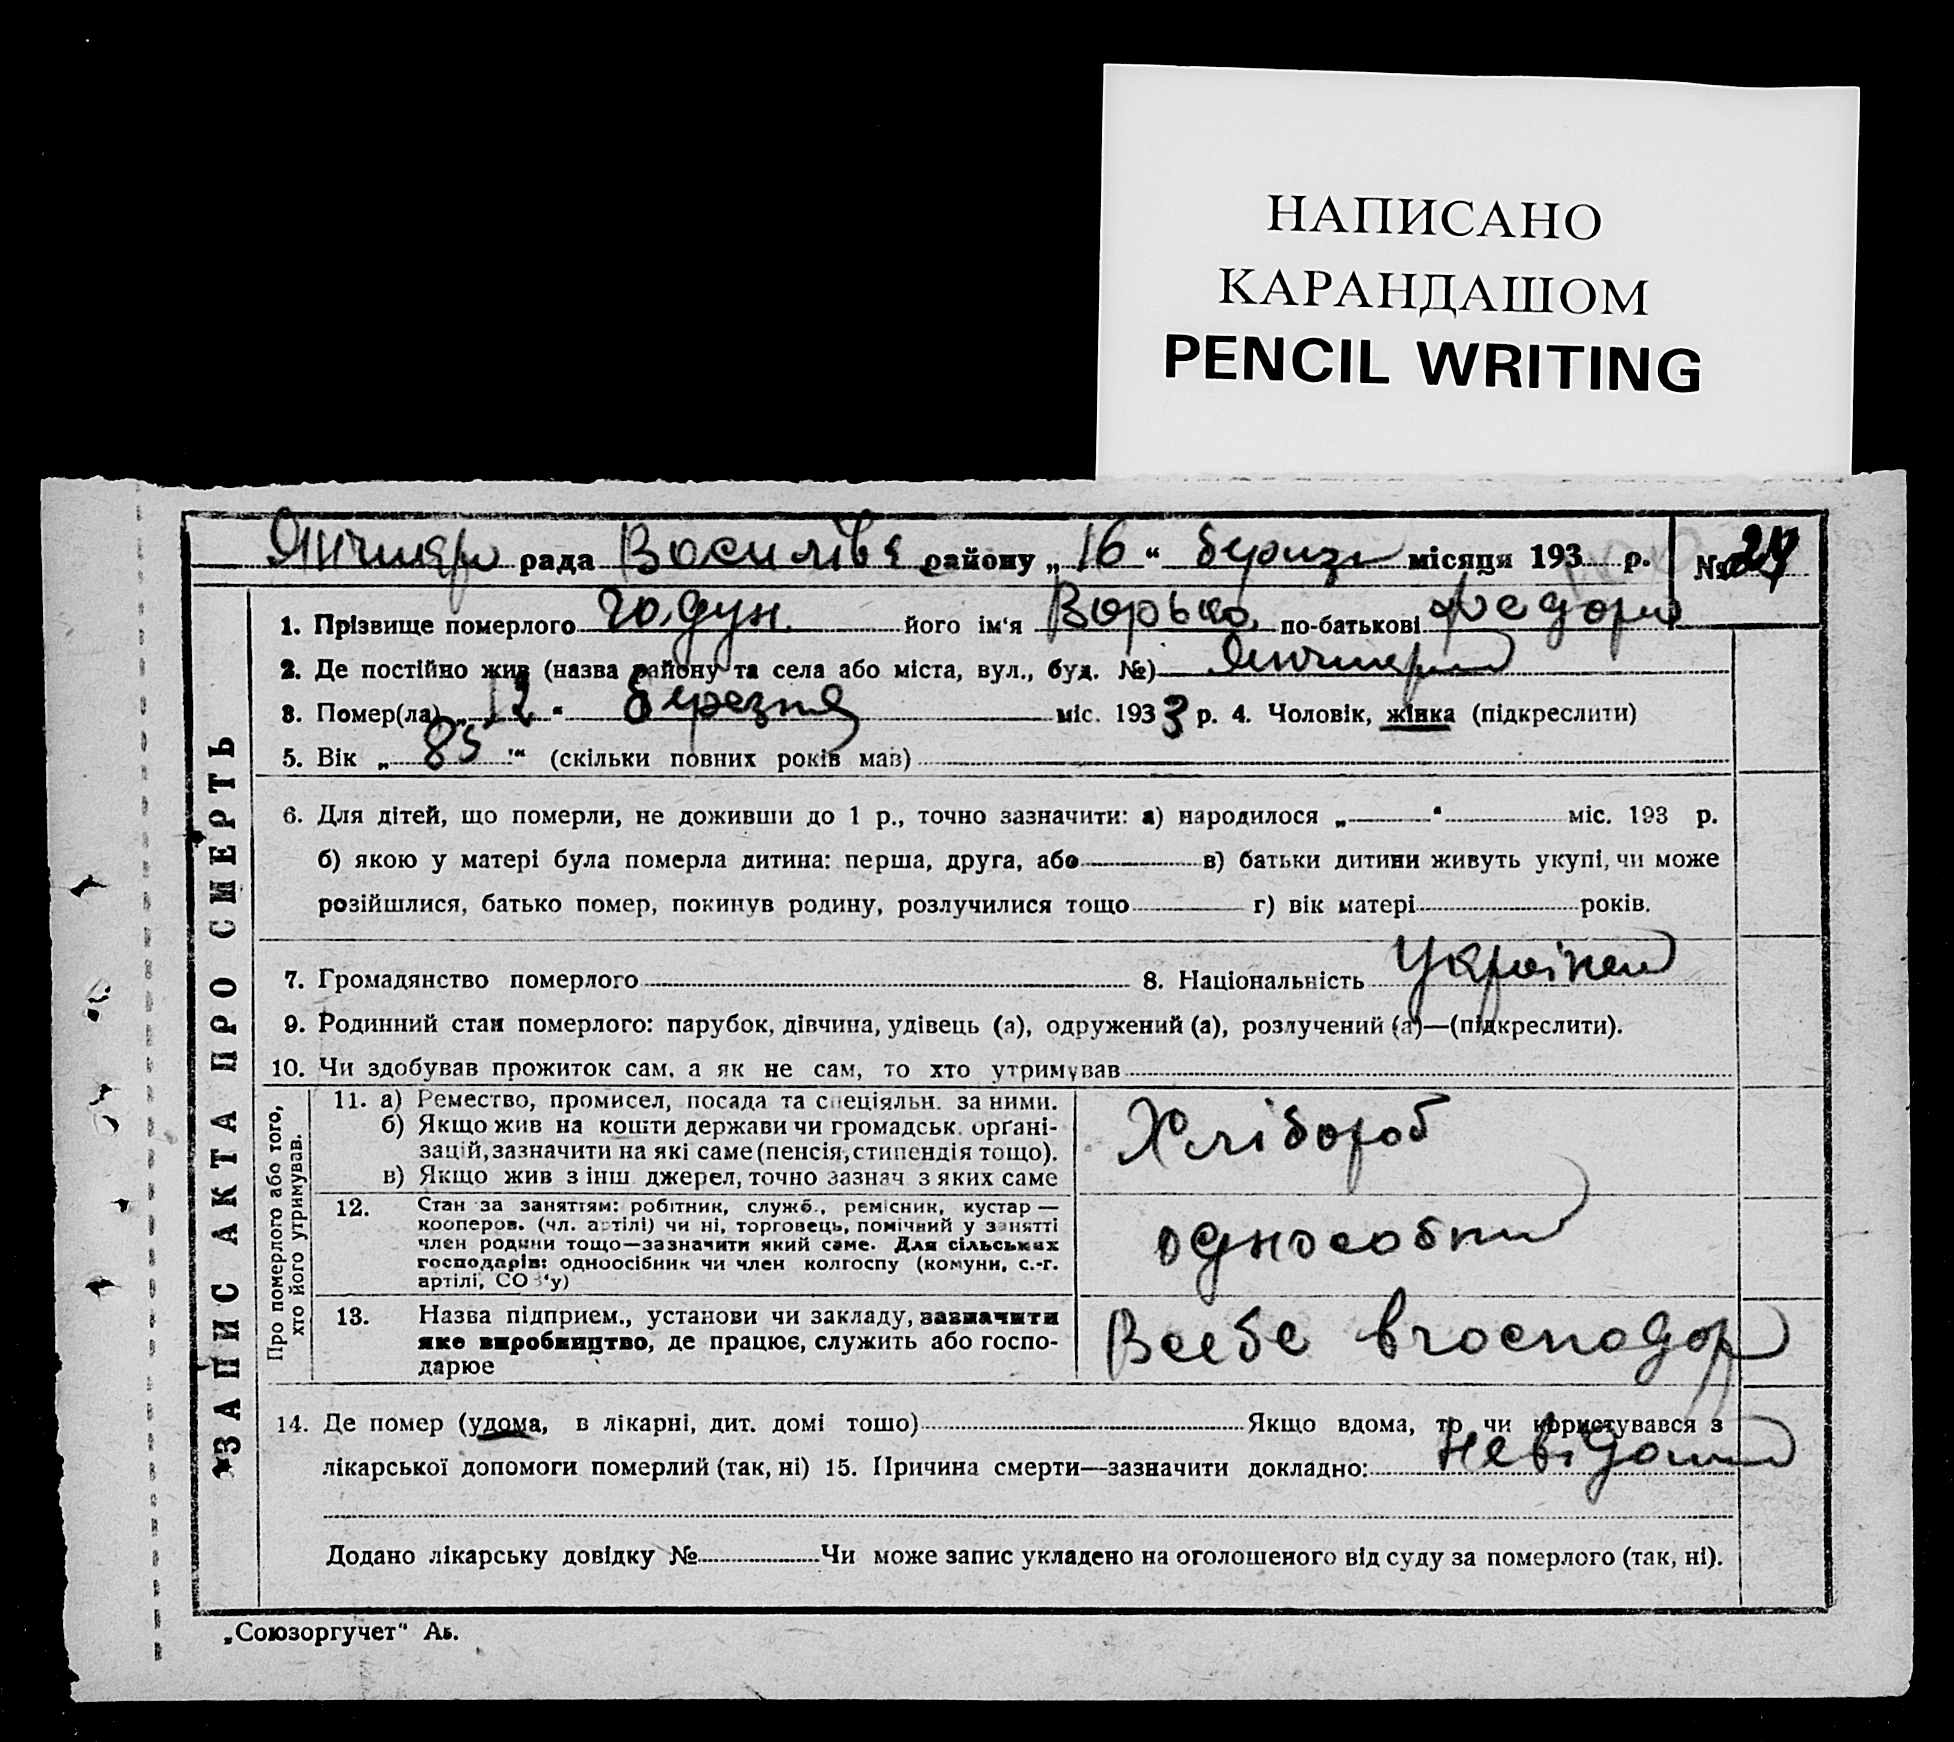 НАПИСАНО
КАРАНДАШОМ
PENCIL WRITING
рада Василівс району „16“ місяця 193 р. №
1. Прізвище померлого Годун його ім‘я по-батькові Федорів
2. Де постійно жив (назва району та села або міста, вул., буд. №)
3. Помер(ла) „12“ березня міс. 1933 р. 4. Чоловік, жінка (підкреслити)
5. Вік „85“ (скільки повних років мав)
6. Для дітей, що померли, не доживши до 1 р., точно зазначити: а) народилося „ “ міс. 193 р.
б) якою у матері була померла дитина: перша, друга, або в) батьки дитини живуть укупі, чи може
розійшлися, батько помер, покинув родину, розлучилися тощо г) вік матері років.
7. Громадянство померлого 8. Національність Україн
9. Родинний стан померлого: парубок, дівчина, удівець (а), одружений (а), розлучений (а)—(підкреслити).
10. Чи здобував прожиток сам, а як не сам, то хто утримував
ЗАПИС АКТА ПРО СМЕРТЬ
Про померлого або того,
хто його утримував.
11. а) Ремество, промисел, посада та спеціяльн. за ними.
б) Якщо жив на кошти держави чи громадськ. орґані-
зацій, зазначити на які саме (пенсія, стипендія тощо).
в) Якщо жив з інш джерел, точно зазнач з яких саме
Хлібороб
12. Стан за заняттям: робітник, служб., ремісник, кустар —
кооперов. (чл. артілі) чи ні, торговець, помічний у занятті
член родини тощо—зазначити який саме. Для сільських
господарів: одноосібник чи член колгоспу (комуни, с.-г.
артілі, СОЗ‘у)
13. Назва підприєм., установи чи закладу, зазначити
яке виробництво, де працює, служить або госпо-
дарює
Всебе вгосподар
14. Де помер (удома, в лікарні, дит. домі тощо) Якщо вдома, то чи користувався з
лікарської допомоги померлий (так, ні) 15. Причина смерти—зазначити докладно: невідома
Додано лікарську довідку № Чи може запис укладено на оголошеного від суду за померлого (так, ні).
„Союзоргучет“